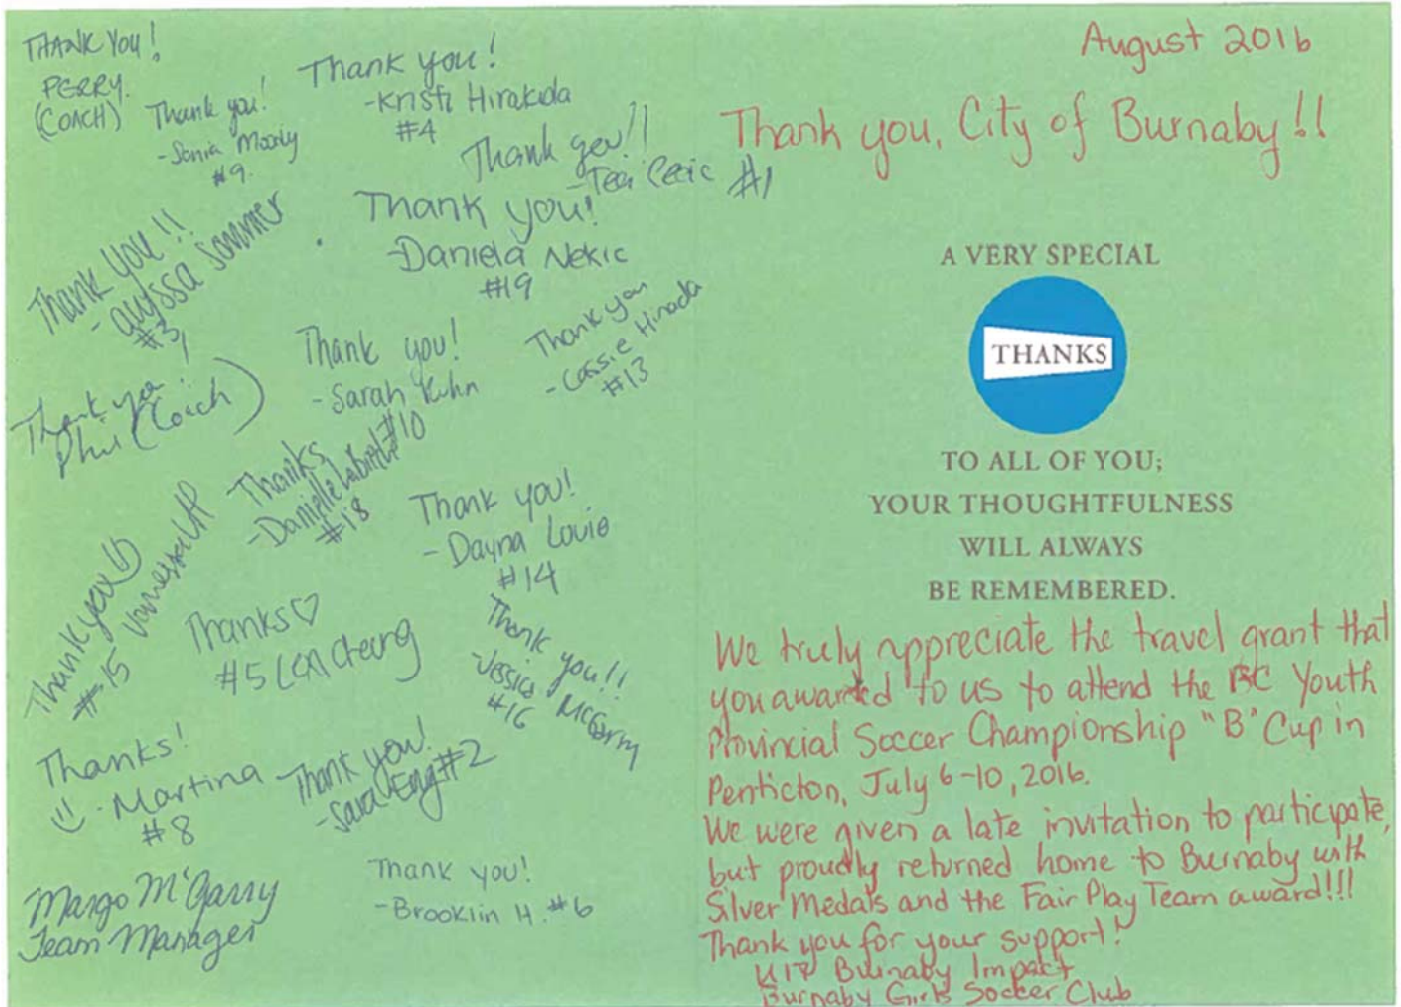 THANK YOU!
PERRY.
(COACH)
Thank you!
-Sonia Moorly
#9.
Thank you!
-Kristi Hirakida
#4
Thank you!!
- #1
Thank you!!
-alyssa Sommer
#3
Thank you!
-Daniela Nekic
#19
Thank you!
Phil (Coach)
Thank you!
-Sarah Kuhn
#10
Thank you
-Cassie
#13
Thanks,
-Danielle
#18
Thank you!
-Dayna Louie
#14
Thank you
#15 Vanessa
Thanks♡
#5 Lexi Cheung
Thank you!!
-Jessica McGarry
#16
Thanks!
-Martina
#8
Thank you!
-Sara Eng #2
Margo McGarry
Team Manager
Thank you!
-Brooklin H. #6
August 2016
Thank you, City of Burnaby!!
A VERY SPECIAL
THANKS
TO ALL OF YOU;
YOUR THOUGHTFULNESS
WILL ALWAYS
BE REMEMBERED.
We truly appreciate the travel grant that
you awarded to us to attend the BC Youth
Provincial Soccer Championship "B" Cup in
Penticton, July 6-10, 2016.
We were given a late invitation to participate,
but proudly returned home to Burnaby with
Silver Medals and the Fair Play Team award!!!
Thank you for your support!
U17 Burnaby Impact
Burnaby Girls Soccer Club